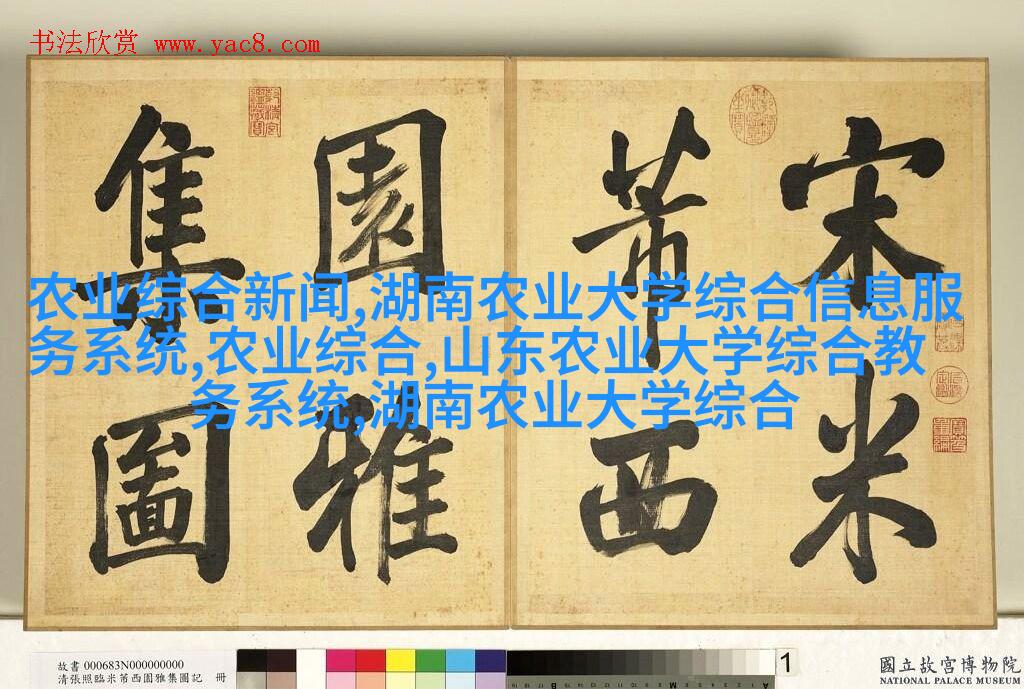 书法欣赏 www.yac8.com
宋米
芾西
園雅
集圖
农业综合新闻,湖南农业大学综合信息服
务系统,农业综合,山东农业大学综合教
务系统,湖南农业大学综合
故書 000683N000000000
清張照臨米芾西園雅集圖記 冊
1
國立故宮博物院
NATIONAL PALACE MUSEUM